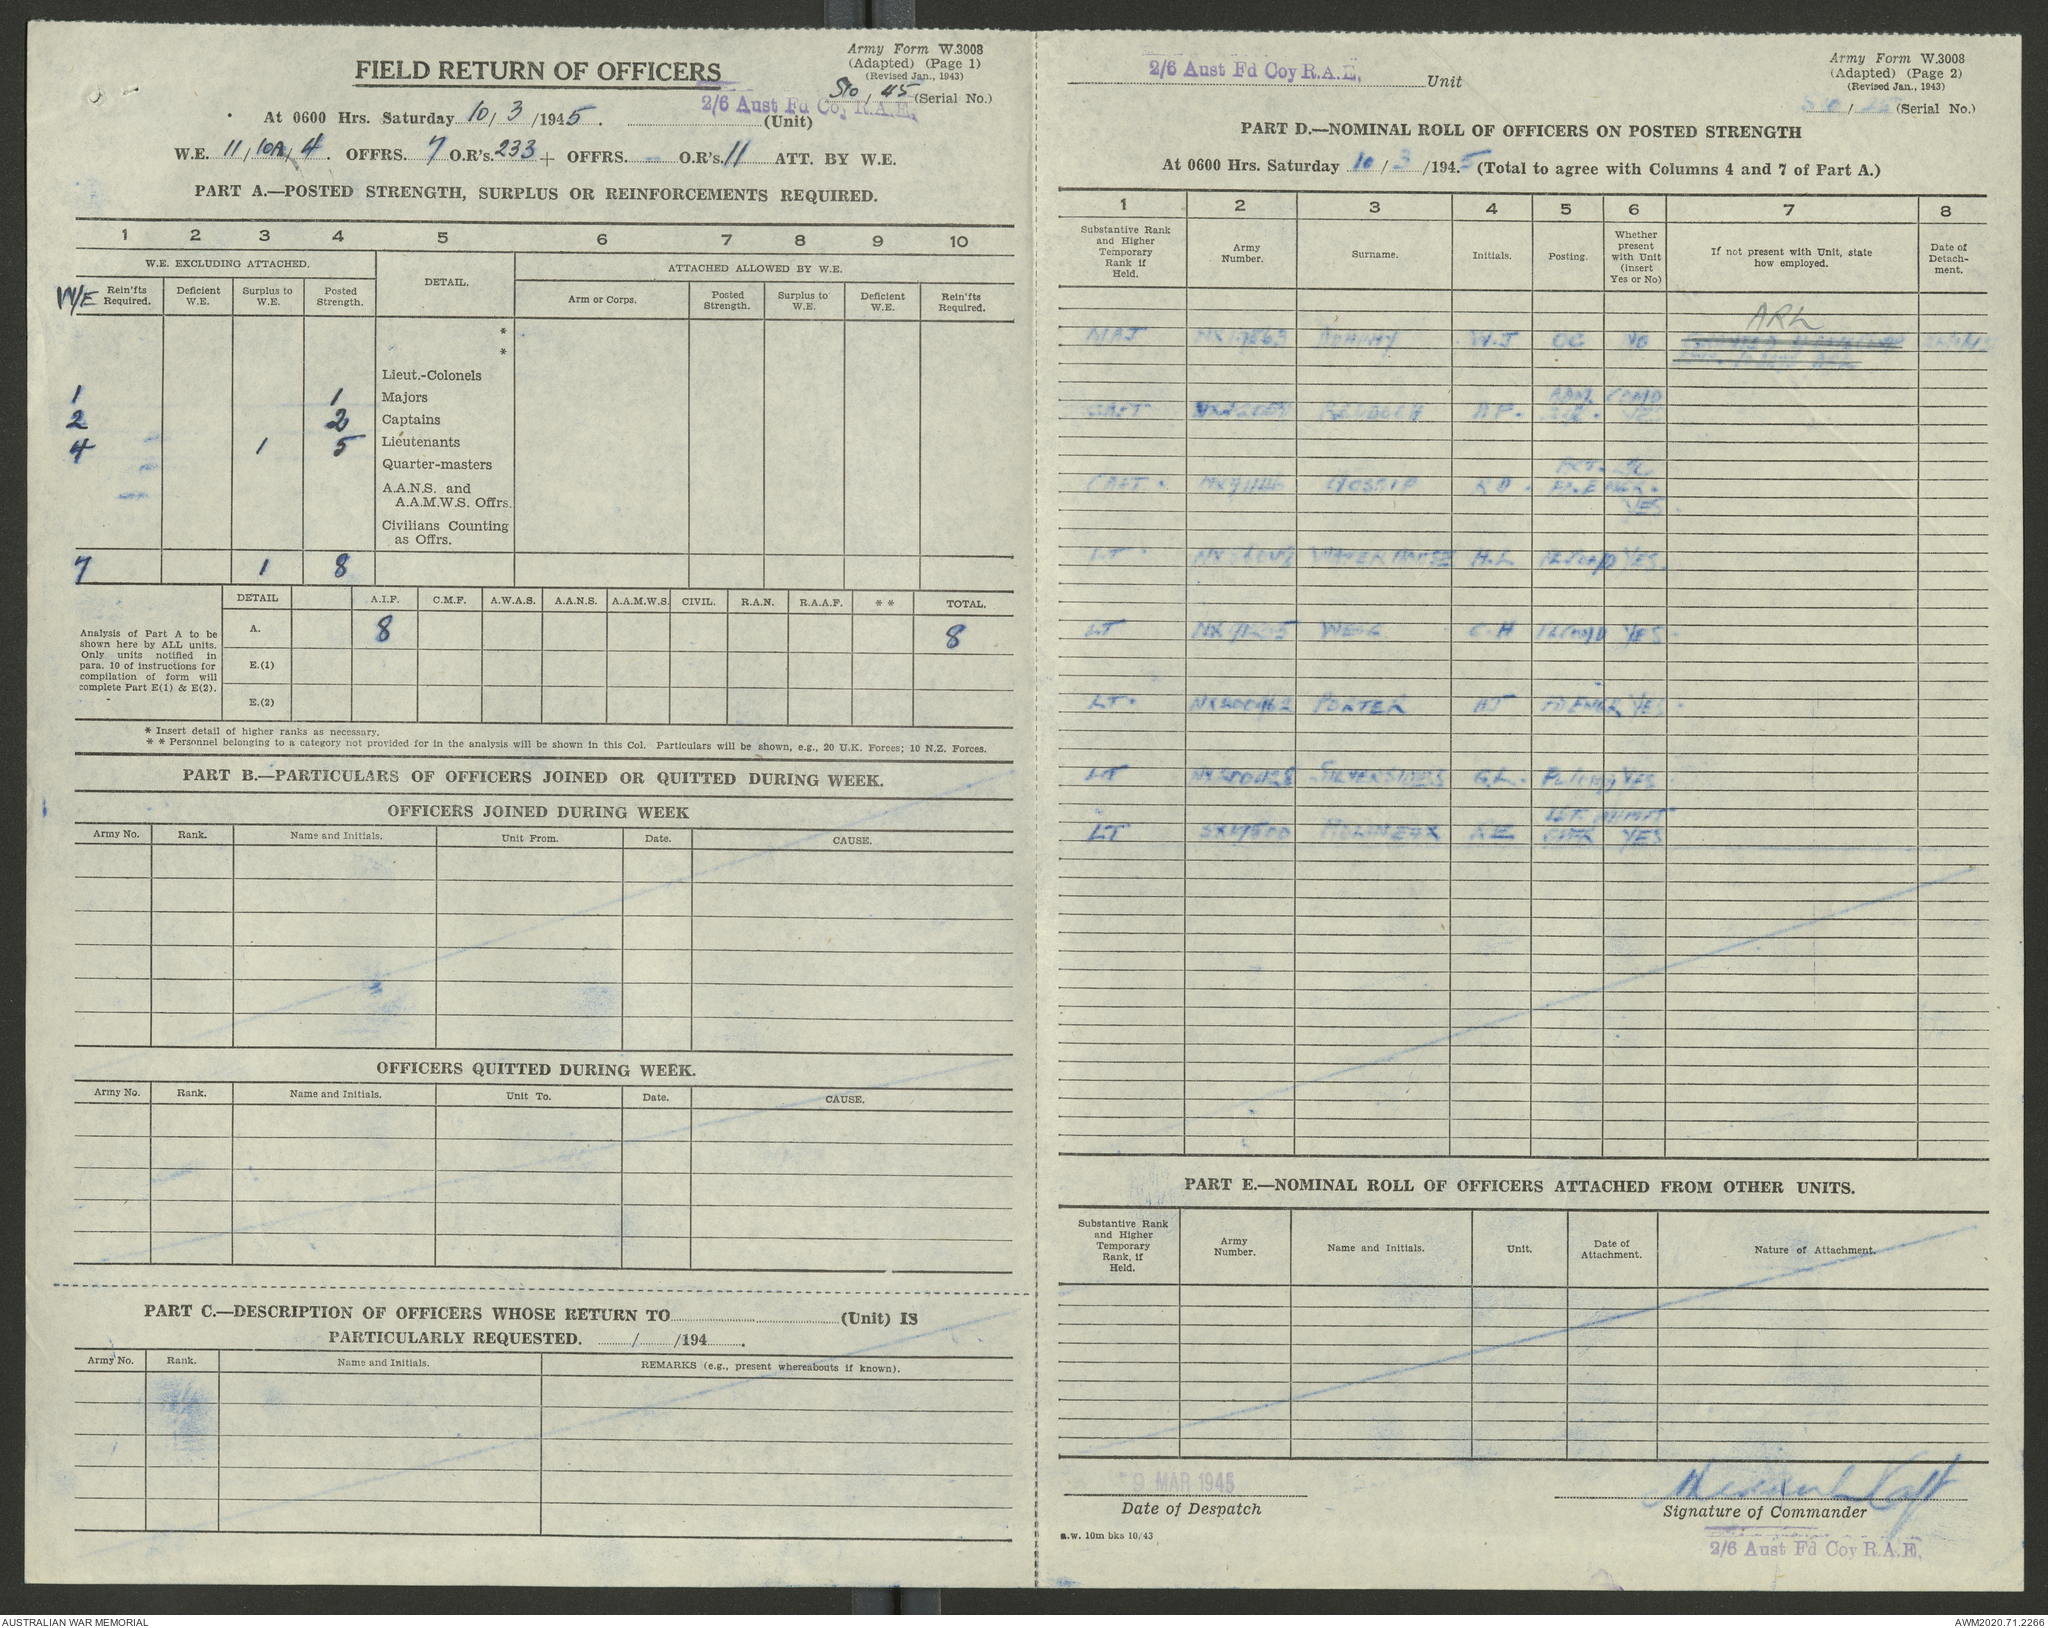 Army Form W.3008
(Adapted) (Page 1)
(Revised Jan., 1943)
FIELD RETURN OF OFFICERS
45 (Serial No.)
2/6 Aust Fd Coy R.A.E.
At 0600 Hrs. Saturday 10/3/1945. (Unit)
W.E. 11/10A/4. OFFRS. 7 O.R's. 233 + OFFRS. - O.R's. 11 ATT. BY W.E.
PART A.—POSTED STRENGTH, SURPLUS OR REINFORCEMENTS REQUIRED.
1 2 3 4 5 6 7 8 9 10
W.E. EXCLUDING ATTACHED. DETAIL. ATTACHED ALLOWED BY W.E.
W/E Rein'fts Required. Deficient W.E. Surplus to W.E. Posted Strength. Arm or Corps. Posted Strength. Surplus to W.E. Deficient W.E. Rein'fts Required.
*
*
Lieut.-Colonels
1 1 Majors
2 2 Captains
4 1 5 Lieutenants
Quarter-masters
A.A.N.S. and
A.A.M.W.S. Offrs.
Civilians Counting
as Offrs.
7 1 8
DETAIL A.I.F. C.M.F. A.W.A.S. A.A.N.S. A.A.M.W.S. CIVIL. R.A.N. R.A.A.F. * * TOTAL.
Analysis of Part A to be
shown here by ALL units.
Only units notified in
para. 10 of instructions for
compilation of form will
complete Part E(1) & E(2).
A. 8 8
E.(1)
E.(2)
* Insert detail of higher ranks as necessary.
* * Personnel belonging to a category not provided for in the analysis will be shown in this Col. Particulars will be shown, e.g., 20 U.K. Forces; 10 N.Z. Forces.
PART B.—PARTICULARS OF OFFICERS JOINED OR QUITTED DURING WEEK.
OFFICERS JOINED DURING WEEK
Army No. Rank. Name and Initials. Unit From. Date. CAUSE.
OFFICERS QUITTED DURING WEEK.
Army No. Rank. Name and Initials. Unit To. Date. CAUSE.
PART C.—DESCRIPTION OF OFFICERS WHOSE RETURN TO (Unit) IS
PARTICULARLY REQUESTED. / /194 .
Army No. Rank. Name and Initials. REMARKS (e.g., present whereabouts if known).
Army Form W.3008
(Adapted) (Page 2)
(Revised Jan., 1943)
2/6 Aust Fd Coy R.A.E. Unit
(Serial No.)
PART D.—NOMINAL ROLL OF OFFICERS ON POSTED STRENGTH
At 0600 Hrs. Saturday 10/3/1945 (Total to agree with Columns 4 and 7 of Part A.)
1 2 3 4 5 6 7 8
Substantive Rank and Higher Temporary Rank if Held. Army Number. Surname. Initials. Posting. Whether present with Unit (insert Yes or No) If not present with Unit, state how employed. Date of Detachment.
ARL
MAJ W.J OC NO
CAPT YES
CAPT. YES.
LT WATERHOUSE H.L YES.
LT C.H YES
LT. PORTER YES
LT SILVERSIDES G.L. YES
LT YES
PART E.—NOMINAL ROLL OF OFFICERS ATTACHED FROM OTHER UNITS.
Substantive Rank and Higher Temporary Rank, if Held. Army Number. Name and Initials. Unit. Date of Attachment. Nature of Attachment.
9 MAR 1945
Date of Despatch
Capt
Signature of Commander
a.w. 10m bks 10/43
2/6 Aust Fd Coy R.A.E.
AUSTRALIAN WAR MEMORIAL
AWM2020.71.2266